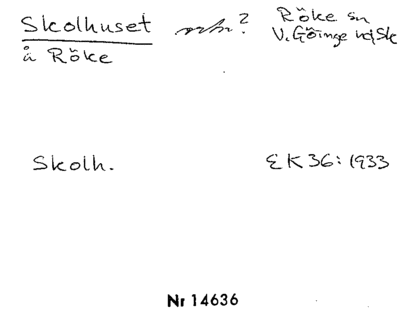 Skolhuset
å Röke
Röke sn
V. Göinge hd Sk
Skolh.
EK 36: 1933
Nr 14636